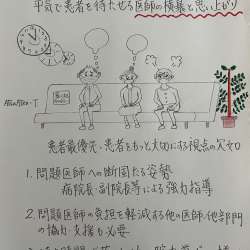 平気で患者を待たせる医師の横暴と思い上がり
患者最優先、患者をもっと大切にする視点の欠如
1. 問題医師への断固たる姿勢
病院長・副院長等による強力指導
2. 問題医師の負担を軽減する他の医師、他部門
の協力・支援も必要